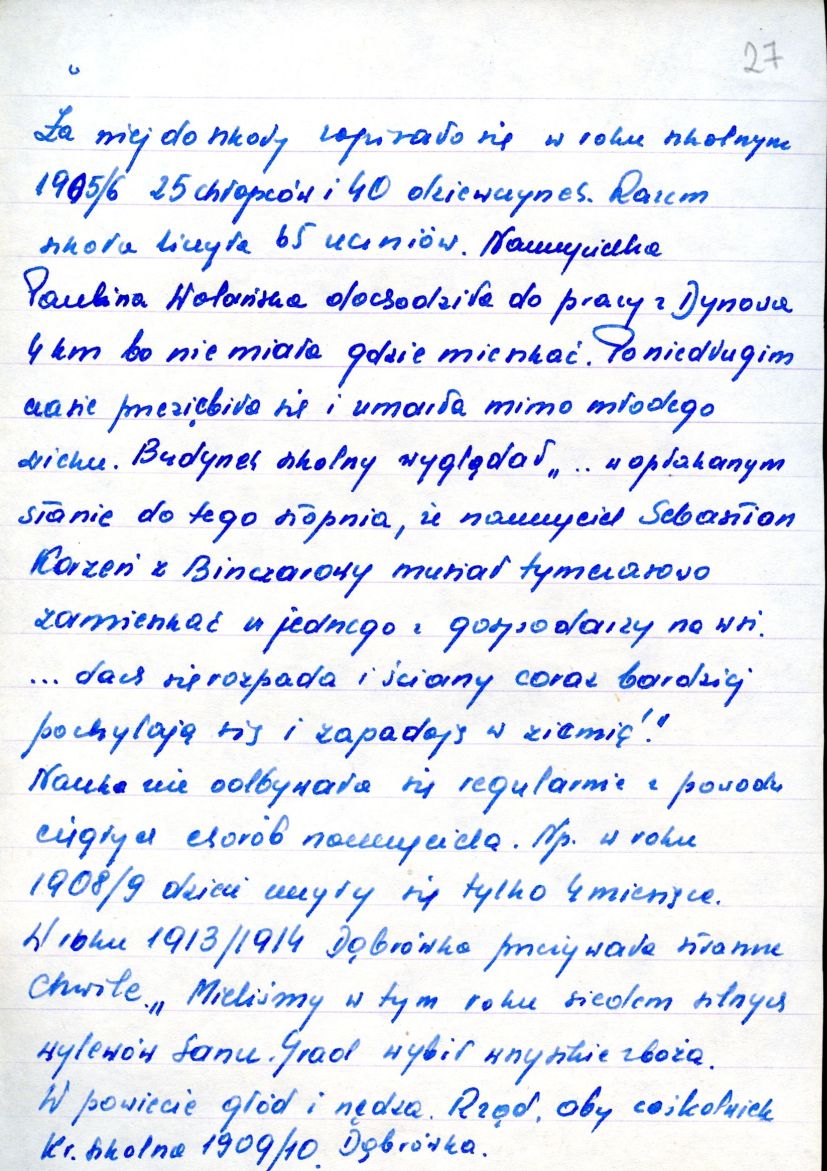 27
Za niej do szkoły zapisało się w roku szkolnym
1905/6 25 chłopców i 40 dziewczynek. Razem
szkoła liczyła 65 uczniów. Nauczycielka
Paulina Wolańska dochodziła do pracy z Dynowa
4 km bo nie miała gdzie mieszkać. Po niedługim
czasie przeziębiła się i umarła mimo młodego
wieku. Budynek szkolny wyglądał „.. w opłakanym
stanie do tego stopnia, że nauczyciel Sebastian
Korzeń z Binczarowy musiał tymczasowo
zamieszkać u jednego z gospodarzy na wsi.
... dach się rozpada i ściany coraz bardziej
pochylają się i zapadają w ziemię!"
Nauka nie odbywała się regularnie z powodu
ciągłych chorób nauczyciela. Np. w roku
1908/9 dzieci uczyły się tylko 4 miesiące.
W roku 1913/1914 Dąbrówka przeżywała straszne
chwile. „Mieliśmy w tym roku siedem silnych
wylewów Sanu. Grad wybił wszystkie zboża.
W powiecie głód i nędza. Rząd, aby cośkolwiek
Kr. szkolna 1909/10 Dąbrówka.